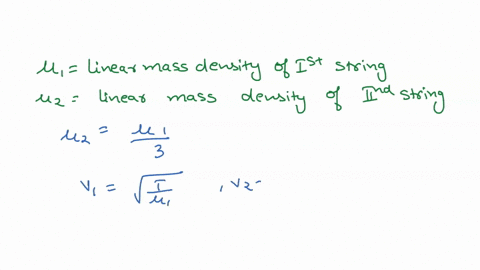 μ₁ = linear mass density of Iˢᵗ string
μ₂ = linear mass density of IIⁿᵈ string
μ₂ = μ₁/3
v₁ = √(T/μ₁) , v₂ -